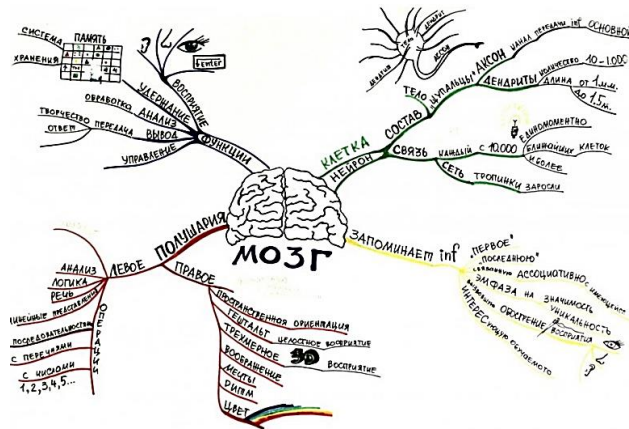 МОЗГ
ФУНКЦИИ
ВОСПРИЯТИЕ
УДЕРЖАНИЕ
ПАМЯТЬ
СИСТЕМА
ХРАНЕНИЯ
АНАЛИЗ
ОБРАБОТКА
ВЫВОД
ПЕРЕДАЧА
ТВОРЧЕСТВО
ОТВЕТ
УПРАВЛЕНИЕ
КЛЕТКА
НЕЙРОН
СОСТАВ
ТЕЛО
"ЩУПАЛЬЦЫ"
АКСОН
КАНАЛ ПЕРЕДАЧИ inf ОСНОВНОЙ
ДЕНДРИТЫ
КОЛИЧЕСТВО
10-1.000
ДЛИНА ОТ 1мм.
ДО 1.5м.
ТЕЛО
ДЕНДРИТ
АКСОН
СВЯЗЬ
КАЖДЫЙ С 10.000
ЕДИНОМОМЕНТНО
БЛИЖАЙШИХ КЛЕТОК
И БОЛЕЕ
СЕТЬ ТРОПИНКИ ЗАРОСЛИ
ЗАПОМИНАЕТ inf
"ПЕРВОЕ"
"ПОСЛЕДНЮЮ"
АССОЦИАТИВНО
ЭМФАЗА НА ЗНАЧИМОСТЬ
УНИКАЛЬНОСТЬ
ОБОСТРЕНИЕ
ВОСПРИЯТИЯ
ИНТЕРЕС
ОБУЧАЕМОГО
ПОЛУШАРИЯ
ЛЕВОЕ
АНАЛИЗ
ЛОГИКА
РЕЧЬ
ОПЕРАЦИИ
ПОСЛЕДОВАТЕЛЬНОСТЬ
С ПЕРЕЧНЯМИ
С ЧИСЛАМИ
1,2,3,4,5...
ПРАВОЕ
ПРОСТРАНСТВЕННАЯ ОРИЕНТАЦИЯ
ГЕШТАЛЬТ
ЦЕЛОСТНОЕ ВОСПРИЯТИЕ
ТРЁХМЕРНОЕ
3D
ВОСПРИЯТИЕ
ВООБРАЖЕНИЕ
МЕЧТЫ
РИТМ
ЦВЕТ